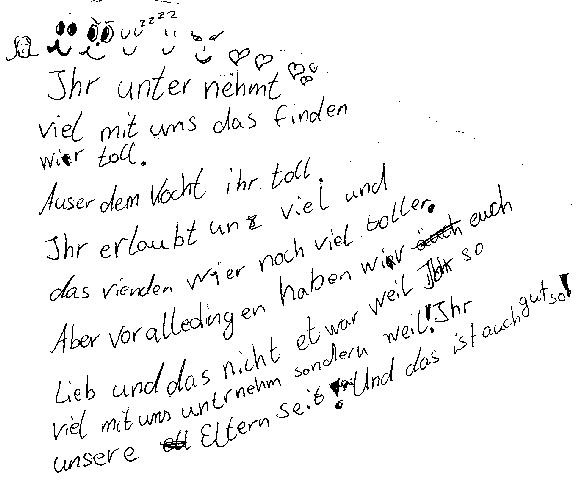 zzzz
Ihr unter nehmt
viel mit uns das finden
wier toll.
Auser dem Kocht ihr toll.
Ihr erlaubt uns viel und
das vienden wier noch viel toller.
Aber vor alledingen haben wier euch
Lieb und das nicht etwar weil Ihr so
viel mit uns unternehm sondern weil! Ihr
unsere Eltern seit! Und das ist auch gut so!